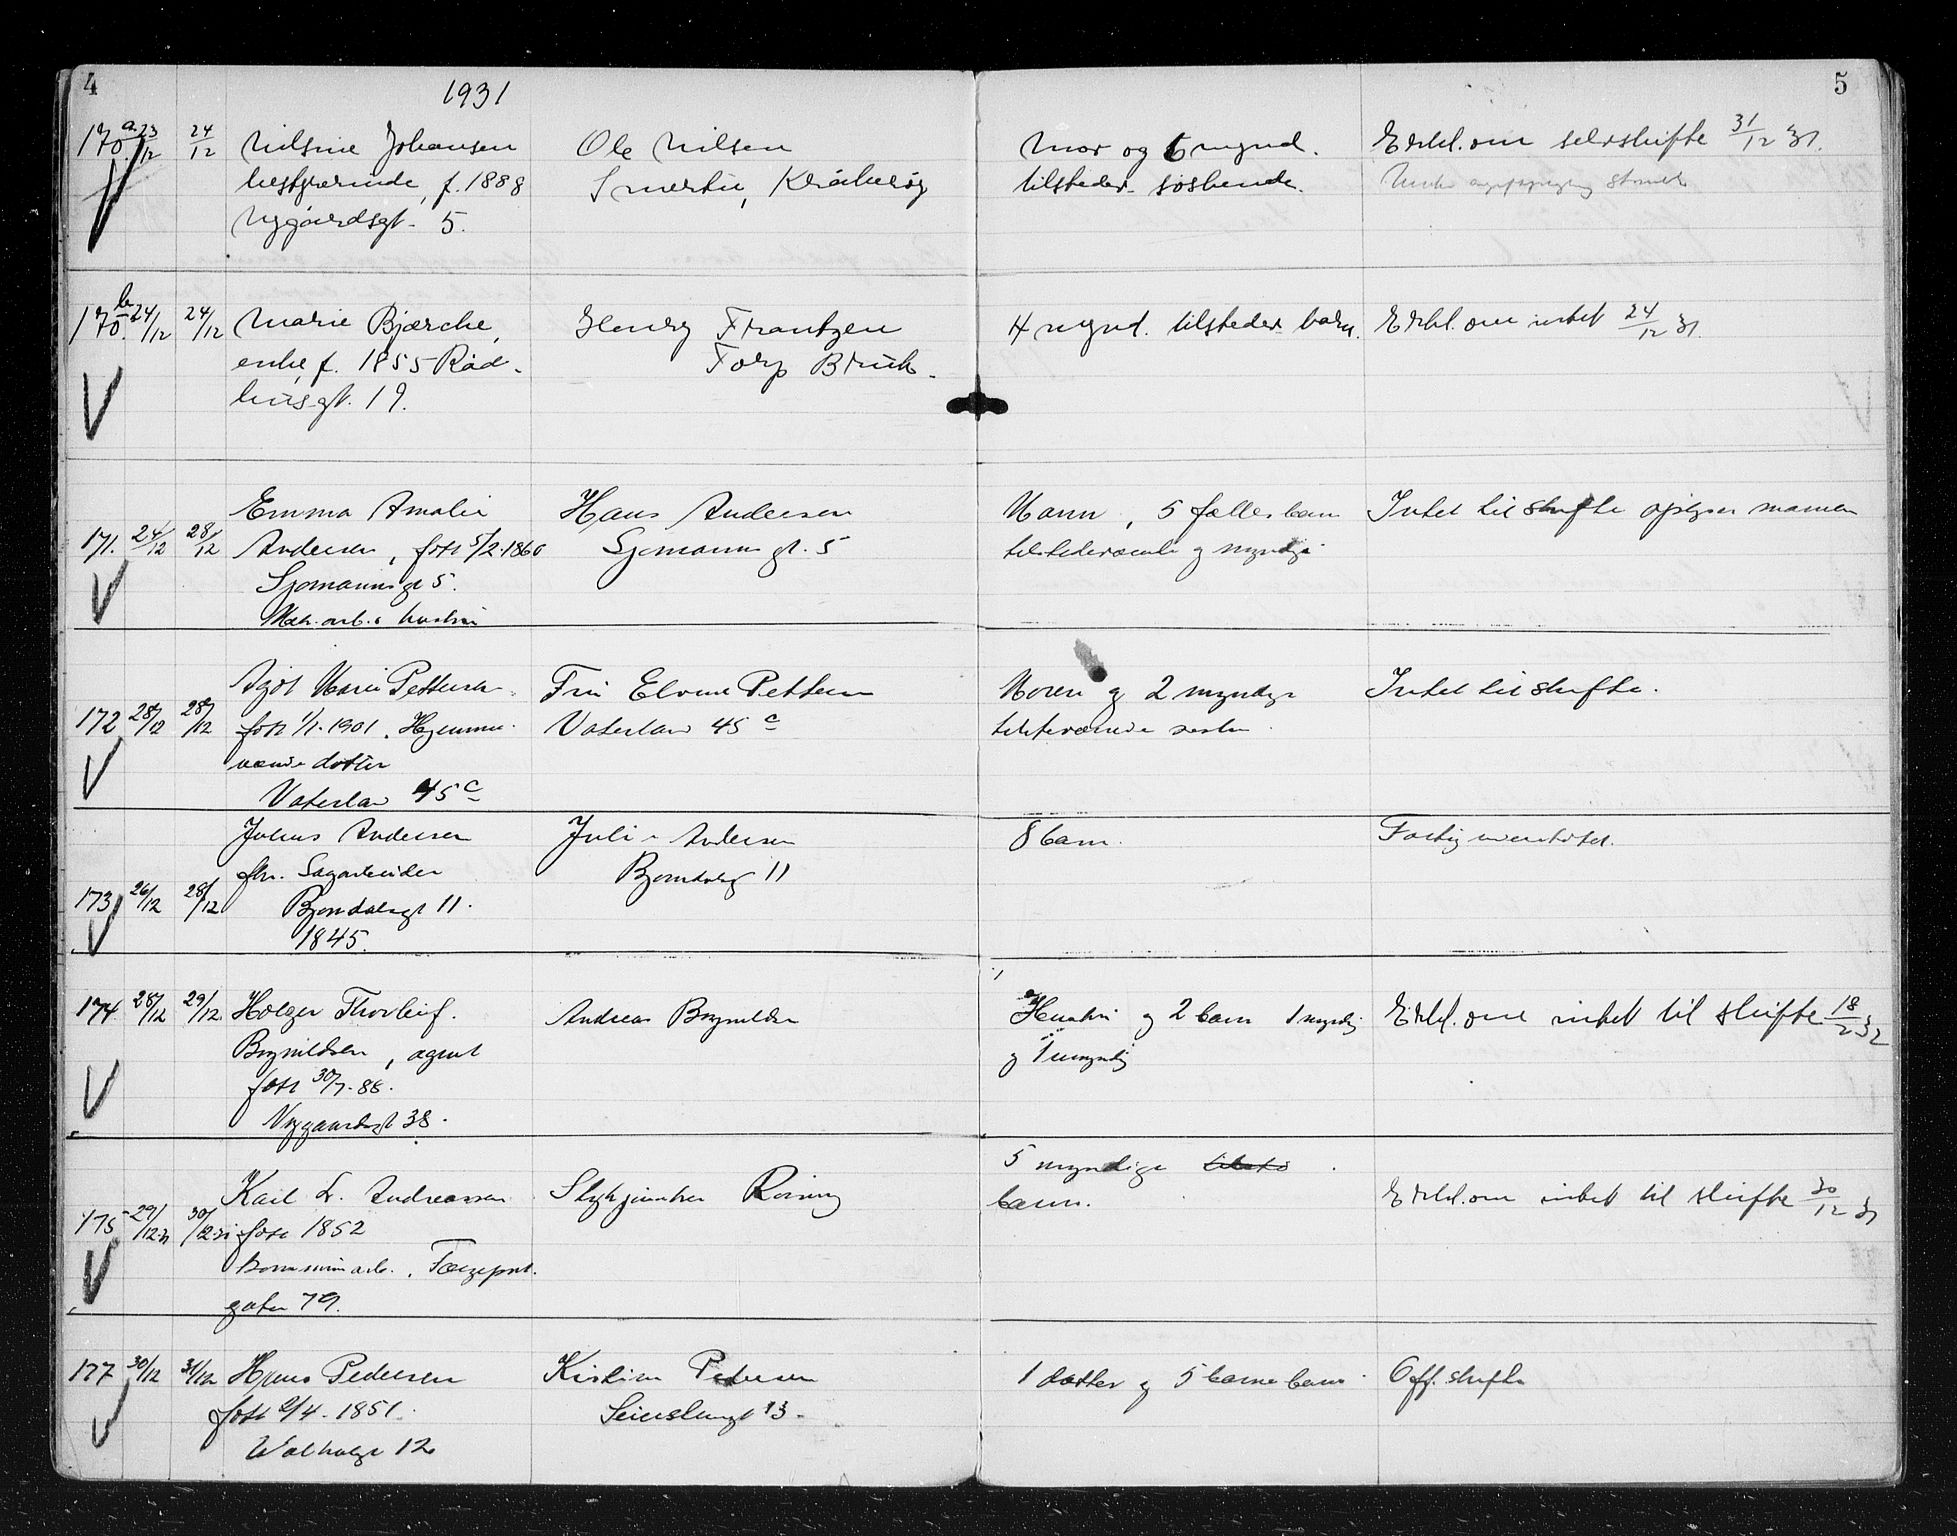 4
1931
5
170.a 23/12 24/12 Nilsine Johansen Ole Nilsen Mor og 6 mynd. Erkl. om selvskifte 31/12 31.
bestyrerinde, f. 1888 Smertu, Kråkerøy tilsteder. søskende.
Nygaardsgt. 5.
170.b 24/12 24/12 Marie Bjærche, Henry Frantzen 4 mynd. tilsteder barn. Erkl. om intet 24/12 31.
enke, f. 1855 Råd- Torp Bruk.
husgt. 19.
Emma Amalie Hans Andersen Mann, 5 fælles barn Intet til skifte opgiver mannen
171. 24/12 28/12 Andersen, født 5/2-1860 Sjømannsgt. 5 tilstedeværende og myndige
Sjømannsgt 5.
Mek. arb.s hustru
Agot Marie Pettersen Fru Petersen Moren og 2 myndige Intet til skifte.
172 28/12 28/12 født 1/1-1901. Hjemme- Vaterland 45 c
værende datter
Vaterland 45 c
Julius Andersen Julie Andersen 8 barn.
fhv. Sagarbeider Bjørndalsgt 11
173 26/12 28/12 Bjørndalsgt 11.
1845.
174. 28/12 29/12. Holger Thorleif. Andreas Brynildsen Hustru og 2 barn 1 myndig Erkl. om intet til skifte 18/2 32
Brynildsen, agent og 1 umyndig
født 30/7-88.
Nygaardsgt 38.
5 myndige
Karl L. Andreassen Stykjunker Roining barn. Erkl. om intet til skifte 30/12 31
175 29/12-31 30/12-31 født 1852
Kommunearb., Færgeport-
gaten 79.
177 30/12 31/12 Hans Pedersen Kristian Pedersen 1 datter og 5 barnebarn. Off. skifte
født 2/4-1851. 13.
Walhalgt 12